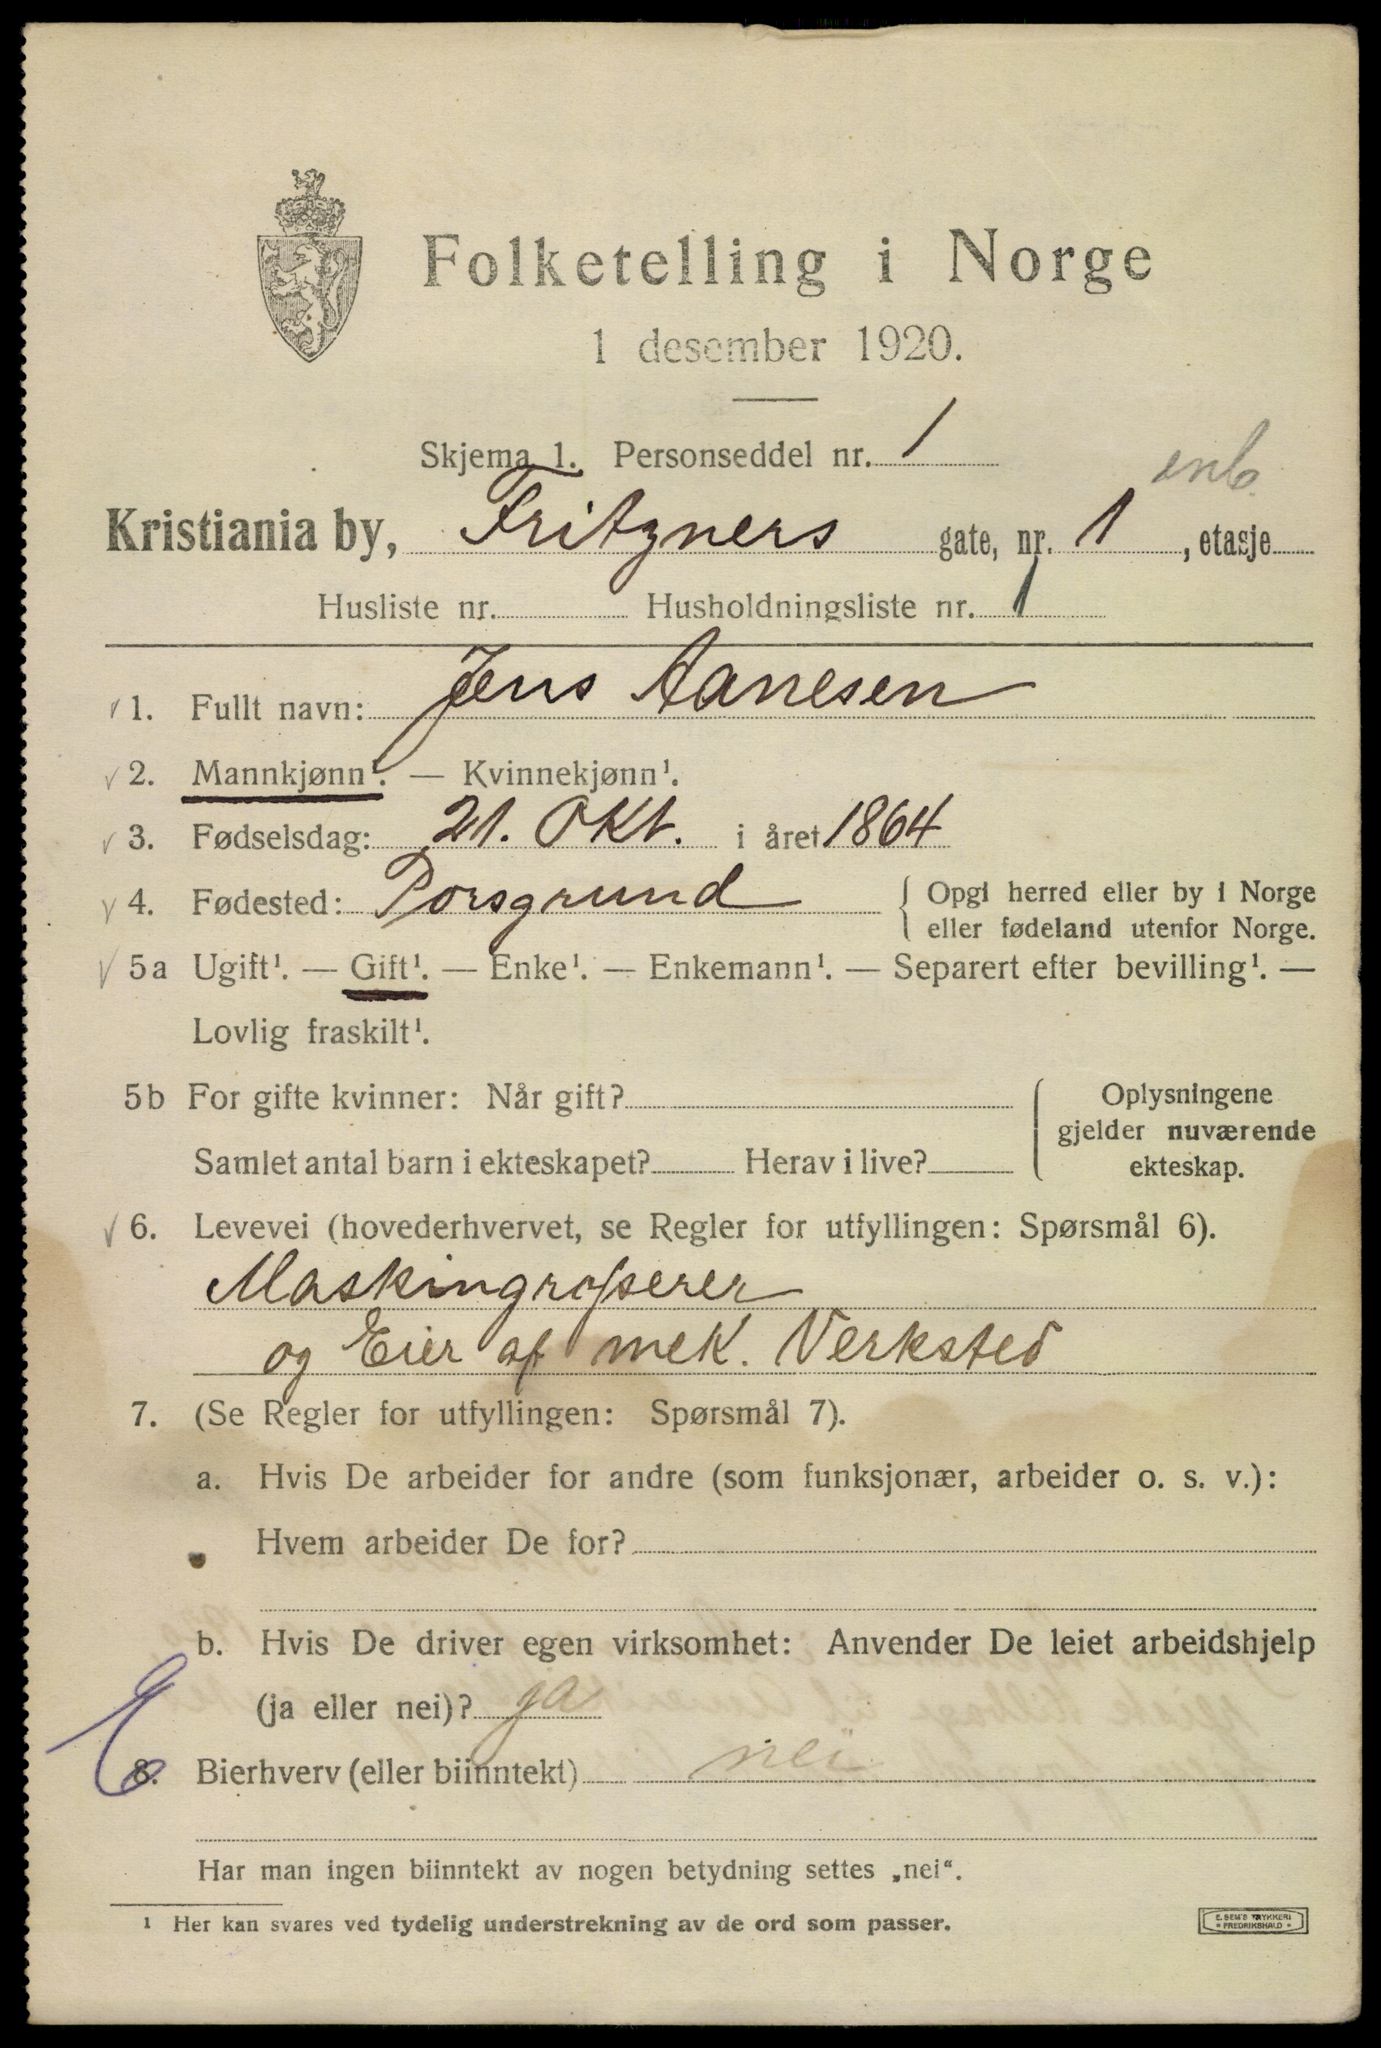 Folketelling i Norge
1 desember 1920.
Skjema 1. Personseddel nr. 1
enb.
Kristiania by, Fritzners gate, nr. 1, etasje
Husliste nr. Husholdningsliste nr. 1
1. Fullt navn: Jens Aanesen
2. Mannkjønn¹. — Kvinnekjønn¹.
3. Fødselsdag: 21. Okt. i året 1864
4. Fødested: Porsgrund { Opgi herred eller by i Norge
eller fødeland utenfor Norge.
5a Ugift¹. — Gift¹. — Enke¹. — Enkemann¹. — Separert efter bevilling¹. —
Lovlig fraskilt¹.
5b For gifte kvinner: Når gift? { Oplysningene
gjelder nuværende
Samlet antal barn i ekteskapet? Herav i live? ekteskap.
6. Levevei (hovederhvervet, se Regler for utfyllingen: Spørsmål 6).
Maskingrosserer
og Eier af mek. Verksted
7. (Se Regler for utfyllingen: Spørsmål 7).
a. Hvis De arbeider for andre (som funksjonær, arbeider o. s. v.):
Hvem arbeider De for?
b. Hvis De driver egen virksomhet: Anvender De leiet arbeidshjelp
(ja eller nei)? ja
E
8. Bierhverv (eller biinntekt) nei
Har man ingen biinntekt av nogen betydning settes „nei“.
¹ Her kan svares ved tydelig understrekning av de ord som passer.
E. SEM'S TRYKKERI
* FREDRIKSHALD *